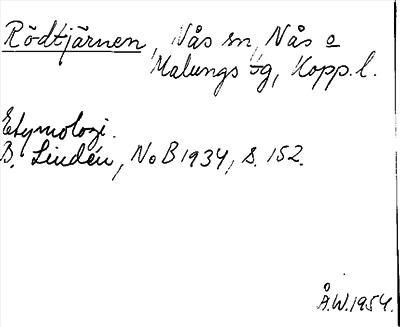 Rödtjärnen, Nås sn, Nås o
Malungs tg, Kopp. l.
Etymologi.
B. Lindén, NoB 1934, s. 152.
Å.W. 1954.